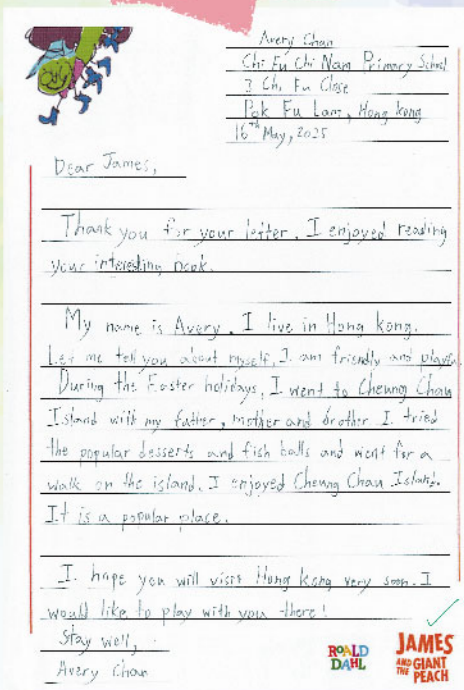 Avery Chan
Chi Fu Chi Nam Primary School
3 Chi Fu Close
Pok Fu Lam, Hong Kong
16th May, 2025
Dear James,
Thank you for your letter. I enjoyed reading
your interesting book.
My name is Avery. I live in Hong Kong.
Let me tell you about myself. I am friendly and playful.
During the Easter holidays, I went to Cheung Chau
Island with my father, mother and brother. I tried
the popular desserts and fish balls and went for a
walk on the island. I enjoyed Cheung Chau Island.
It is a popular place.
I hope you will visit Hong Kong very soon. I
would like to play with you there!
Stay well,
Avery Chan
ROALD
DAHL
JAMES
AND THE GIANT
PEACH